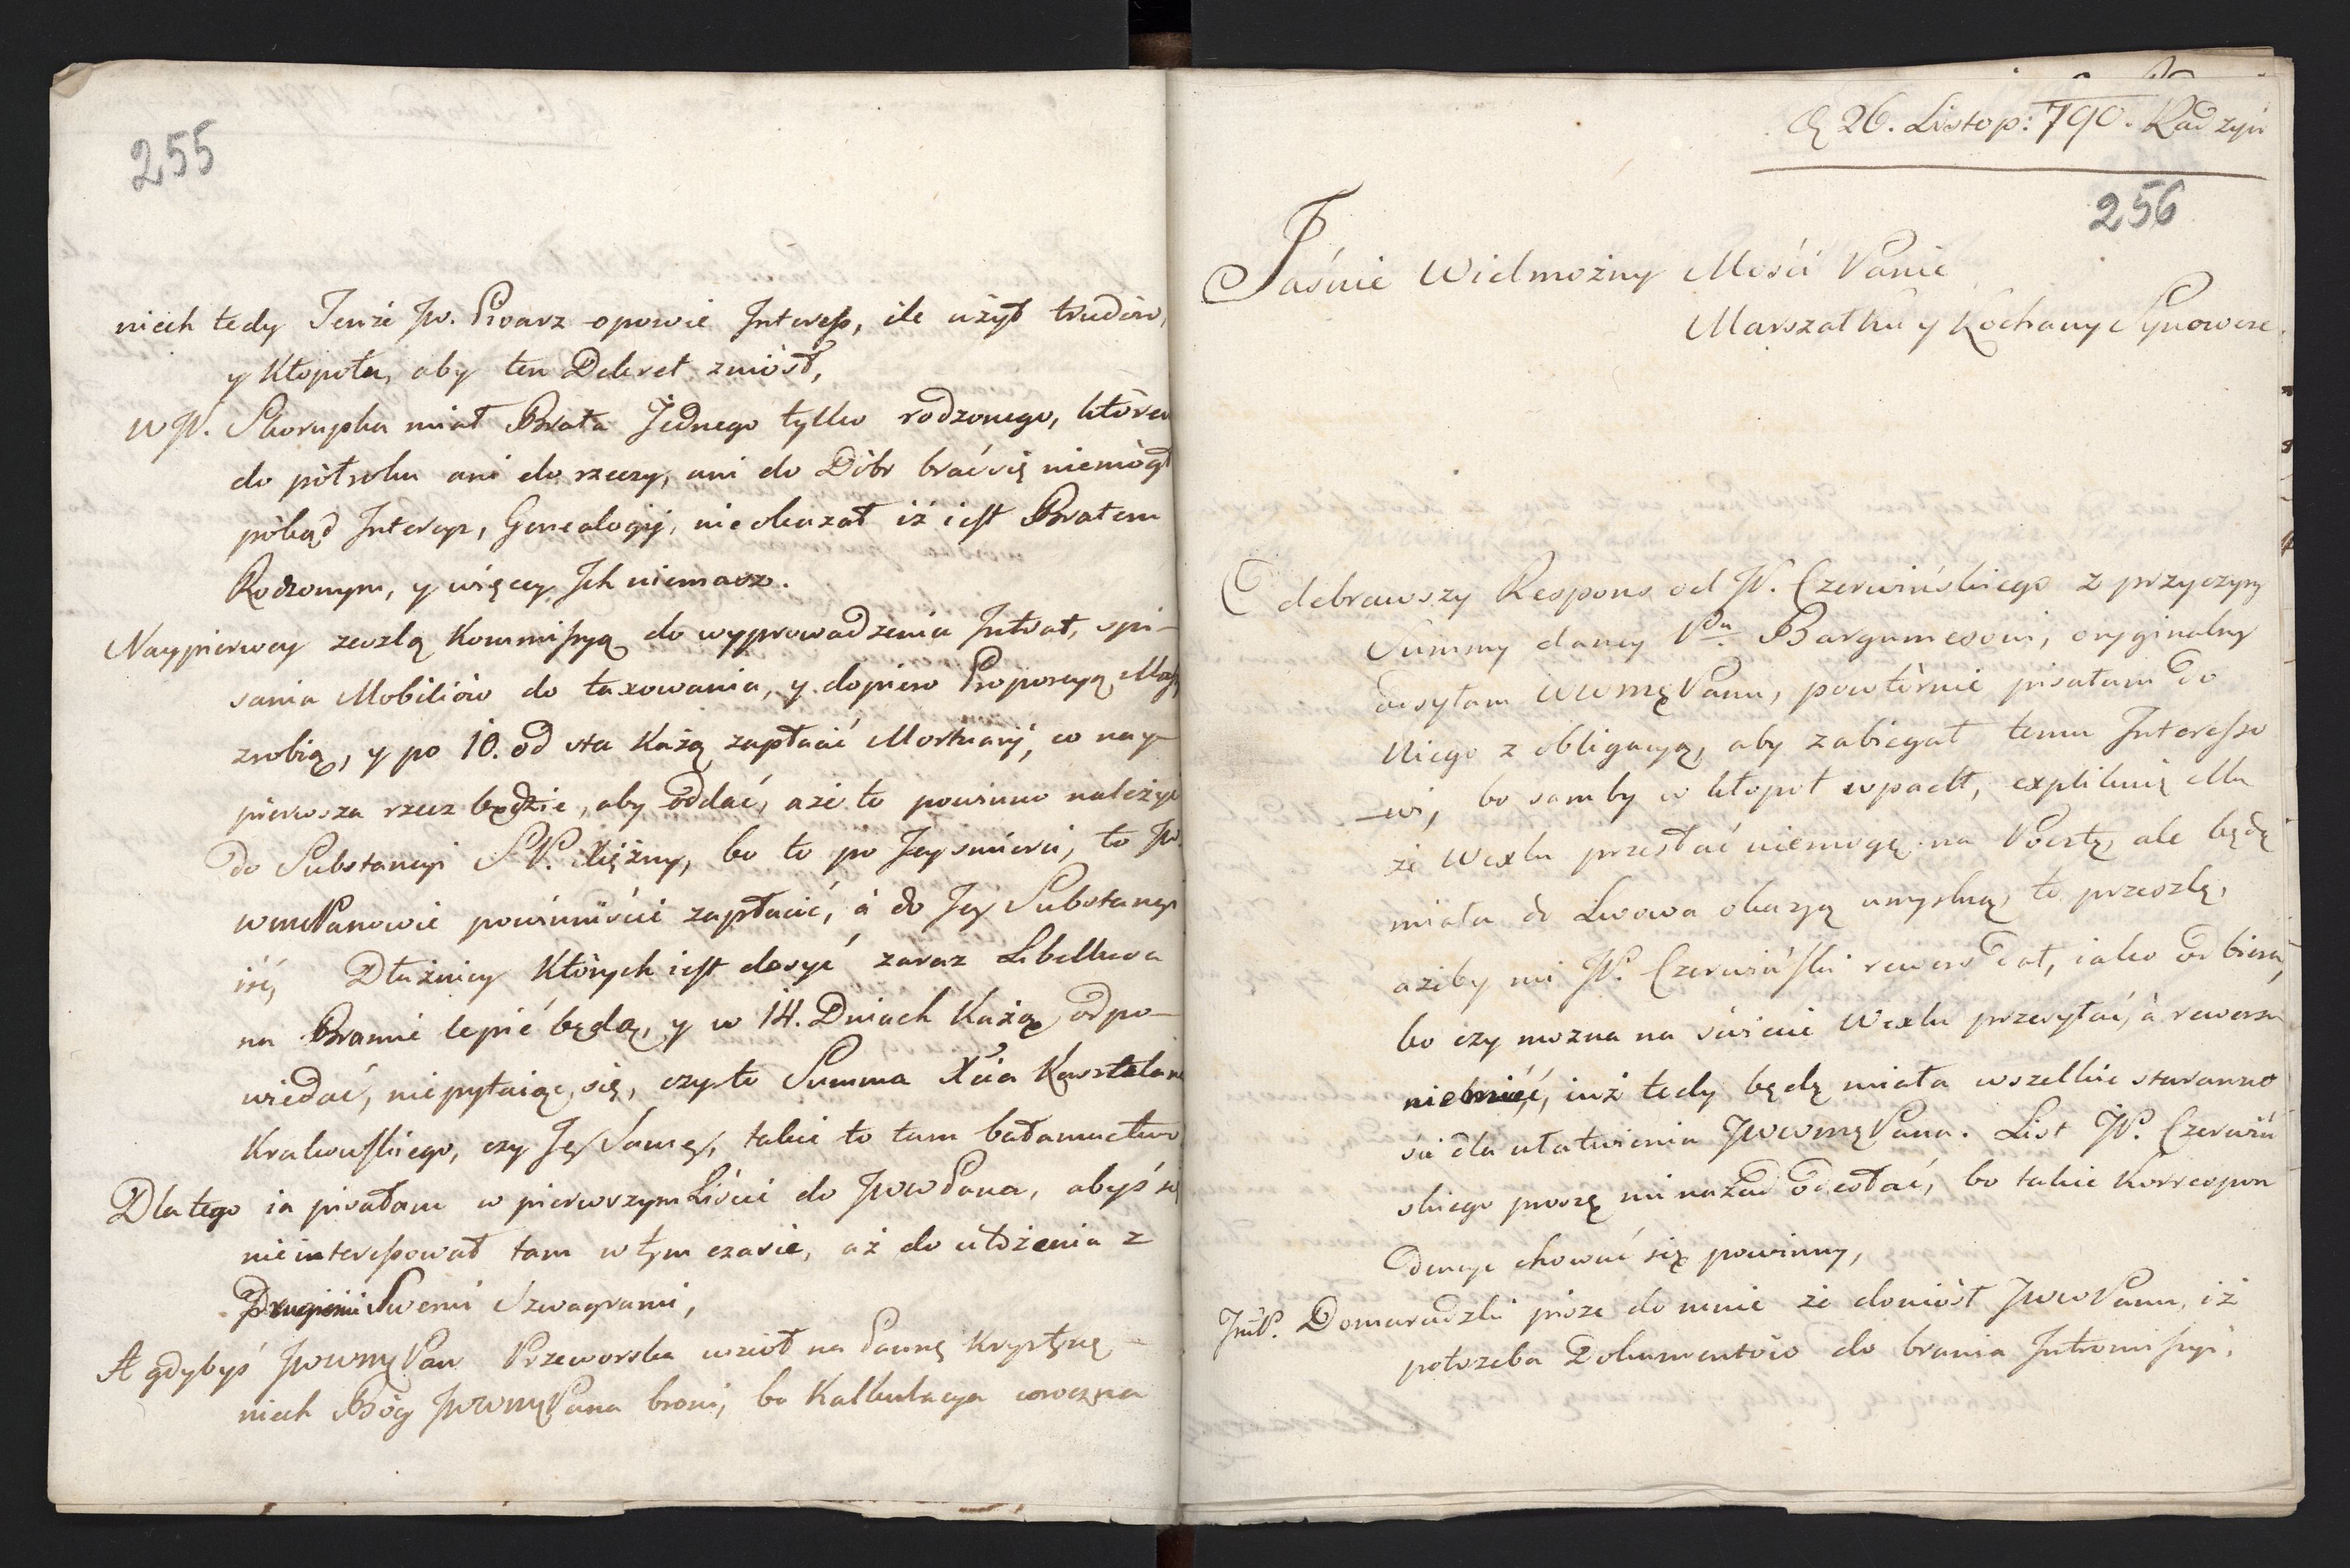 255
niech tedy Tenże Jw. Pisarz opowie Interess, ile użył trudów,
y Kłopotu, aby ten Dekret zniósł,
W JP. Skorupka miał Brata Jednego tylko rodzonego, który
do półroku ani do rzeczy, ani do Dóbr brać się niemógł
pókąd Intercyz, Genealogij, nieokazał iż iest Bratem
Rodzonym, y więcey Ich niemasz.
Naypierwey zeszlą Kommissyą do wyprowadzenia Intrat, spi-
sania Mobiliów do taxowania, y dopiero Proporcyą Massy
zrobią, y po 10. od sta Każą zapłacić Mortuarij, co nay-
pierwsza rzecz będzie, aby oddać, a że to powinno należyć
do Substancyi S.P. Xiężny, bo to po Jey śmierci, to Jw.
WmPanowie powinniście zapłacić, á do Jey Substancyi
iść, Dłużnicy Których iest dosyć zaraz Libellum
na Bramie lepić będą, y w 14. Dniach Każą odpo-
wiedać, niepytaiąc się, czy to Summa Xcia Kasztelana
Krakowskiego, czy Jey Samey, takie to tam bałamuctwo
Dlatego ia pisałam w pierwszym Liście do JwwPana, abyś się
nieinteressował tam w tym czasie, aż do ułożenia z
Drugiemi Swemi Szwagrami,
A gdybyś JwwmęPan Przeworska wziół na Pannę Krystynę
niech Bóg JwwmęPana broni, bo Kalkulacya coroczna
D. 26. Listop: 790. Radzyń
256
Jaśnie Wielmożny Mości Panie
Marszałku y Kochany Synowcze
Odebrawszy Respons od JP. Czerwińskiego z przyczyny
Summy daney Pu. Bargumesowi, oryginalny
odsyłam WWmęPanu, powtórnie pisałam do
Niego z obligacyą, aby zabiegał temu Interesso
-wi, bo sam by w kłopot wpadł, explikuię Mu
że Wexlu przesłać niemogę na Pocztę, ale będę
miała do Lwowa okazyą umyślną, to przeszlę,
ażeby mi JP. Czerwiński rewers dał, iako odbiera,
bo czy można na świecie Wexlu przesyłać, à rewersu
niemieć, iuż tedy będę miała wszelkie staranno
ści dla ułatwienia JwwmęPana. List JP. Czerwiń
skiego proszę mi nazad odesłać, bo takie Korrespon
dencye chować się powinny,
JmP. Domaradzki pisze do mnie że doniósł JwwPanu, iż
potrzeba Dokumentów do brania Intromissyi,